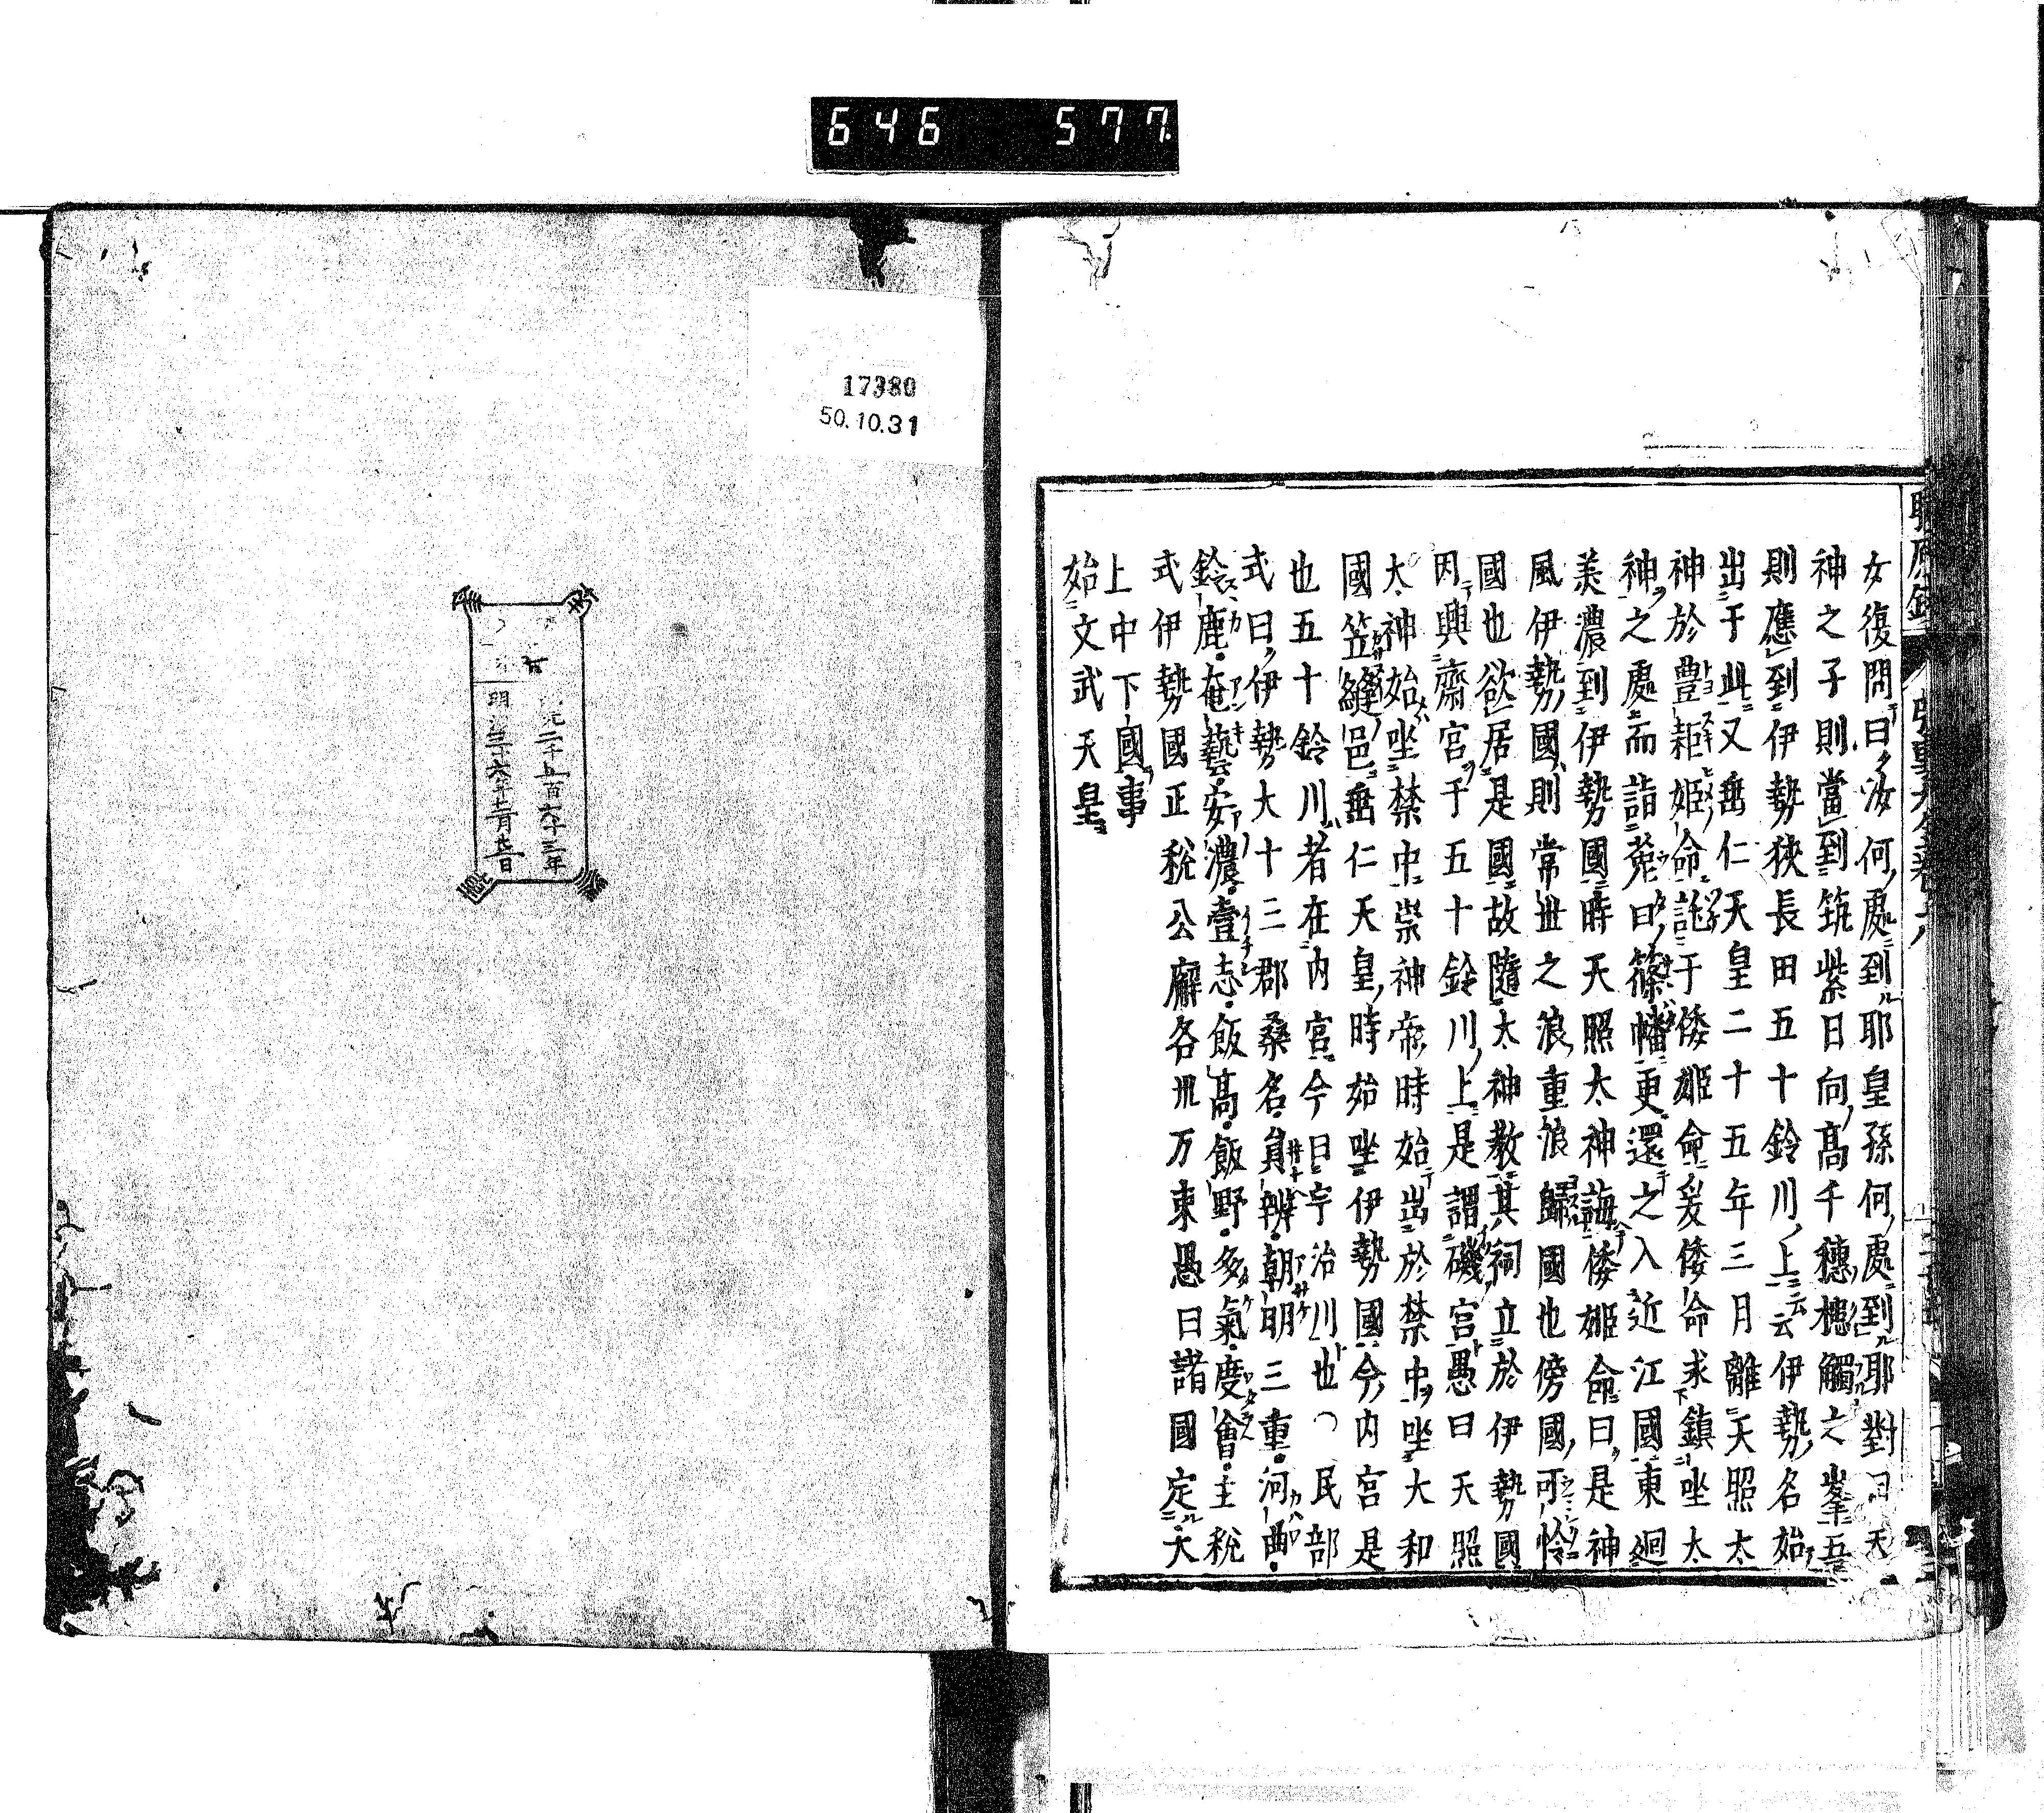 646 577
女復問曰汝何處到耶皇孫何處到耶對曰天
神之子則當到筑紫日向高千穗槵觸之峯吾
則應到伊勢狹長田五十鈴川上云云伊勢名始
出于此又垂仁天皇二十五年三月離天照太
神於豊耜姬命託于倭姬命爰倭命求鎮坐太
神之處而詣菟田篠幡更還之入近江國東廻
美濃到伊勢國時天照太神誨倭姬命曰是神
風伊勢國則常世之浪重浪歸國也傍國可怜
國也欲居是國故隨太神教其祠立於伊勢國
因興齋宮于五十鈴川上是謂磯宮愚曰天照
太神始坐禁中崇神帝時始出於禁中坐大和
國笠縫邑垂仁天皇時始坐伊勢國今內宮是
也五十鈴川者在內宮今日宇治川也民部
式曰伊勢大十三郡桑名員辨朝明三重河曲
鈴鹿奄藝安濃壹志飯高飯野多氣度會主稅
式伊勢國正稅公廨各卅万束愚曰諸國定大
上中下國事
始文武天皇
17380
50.10.31
元二千五百六十三年
明治三十六年